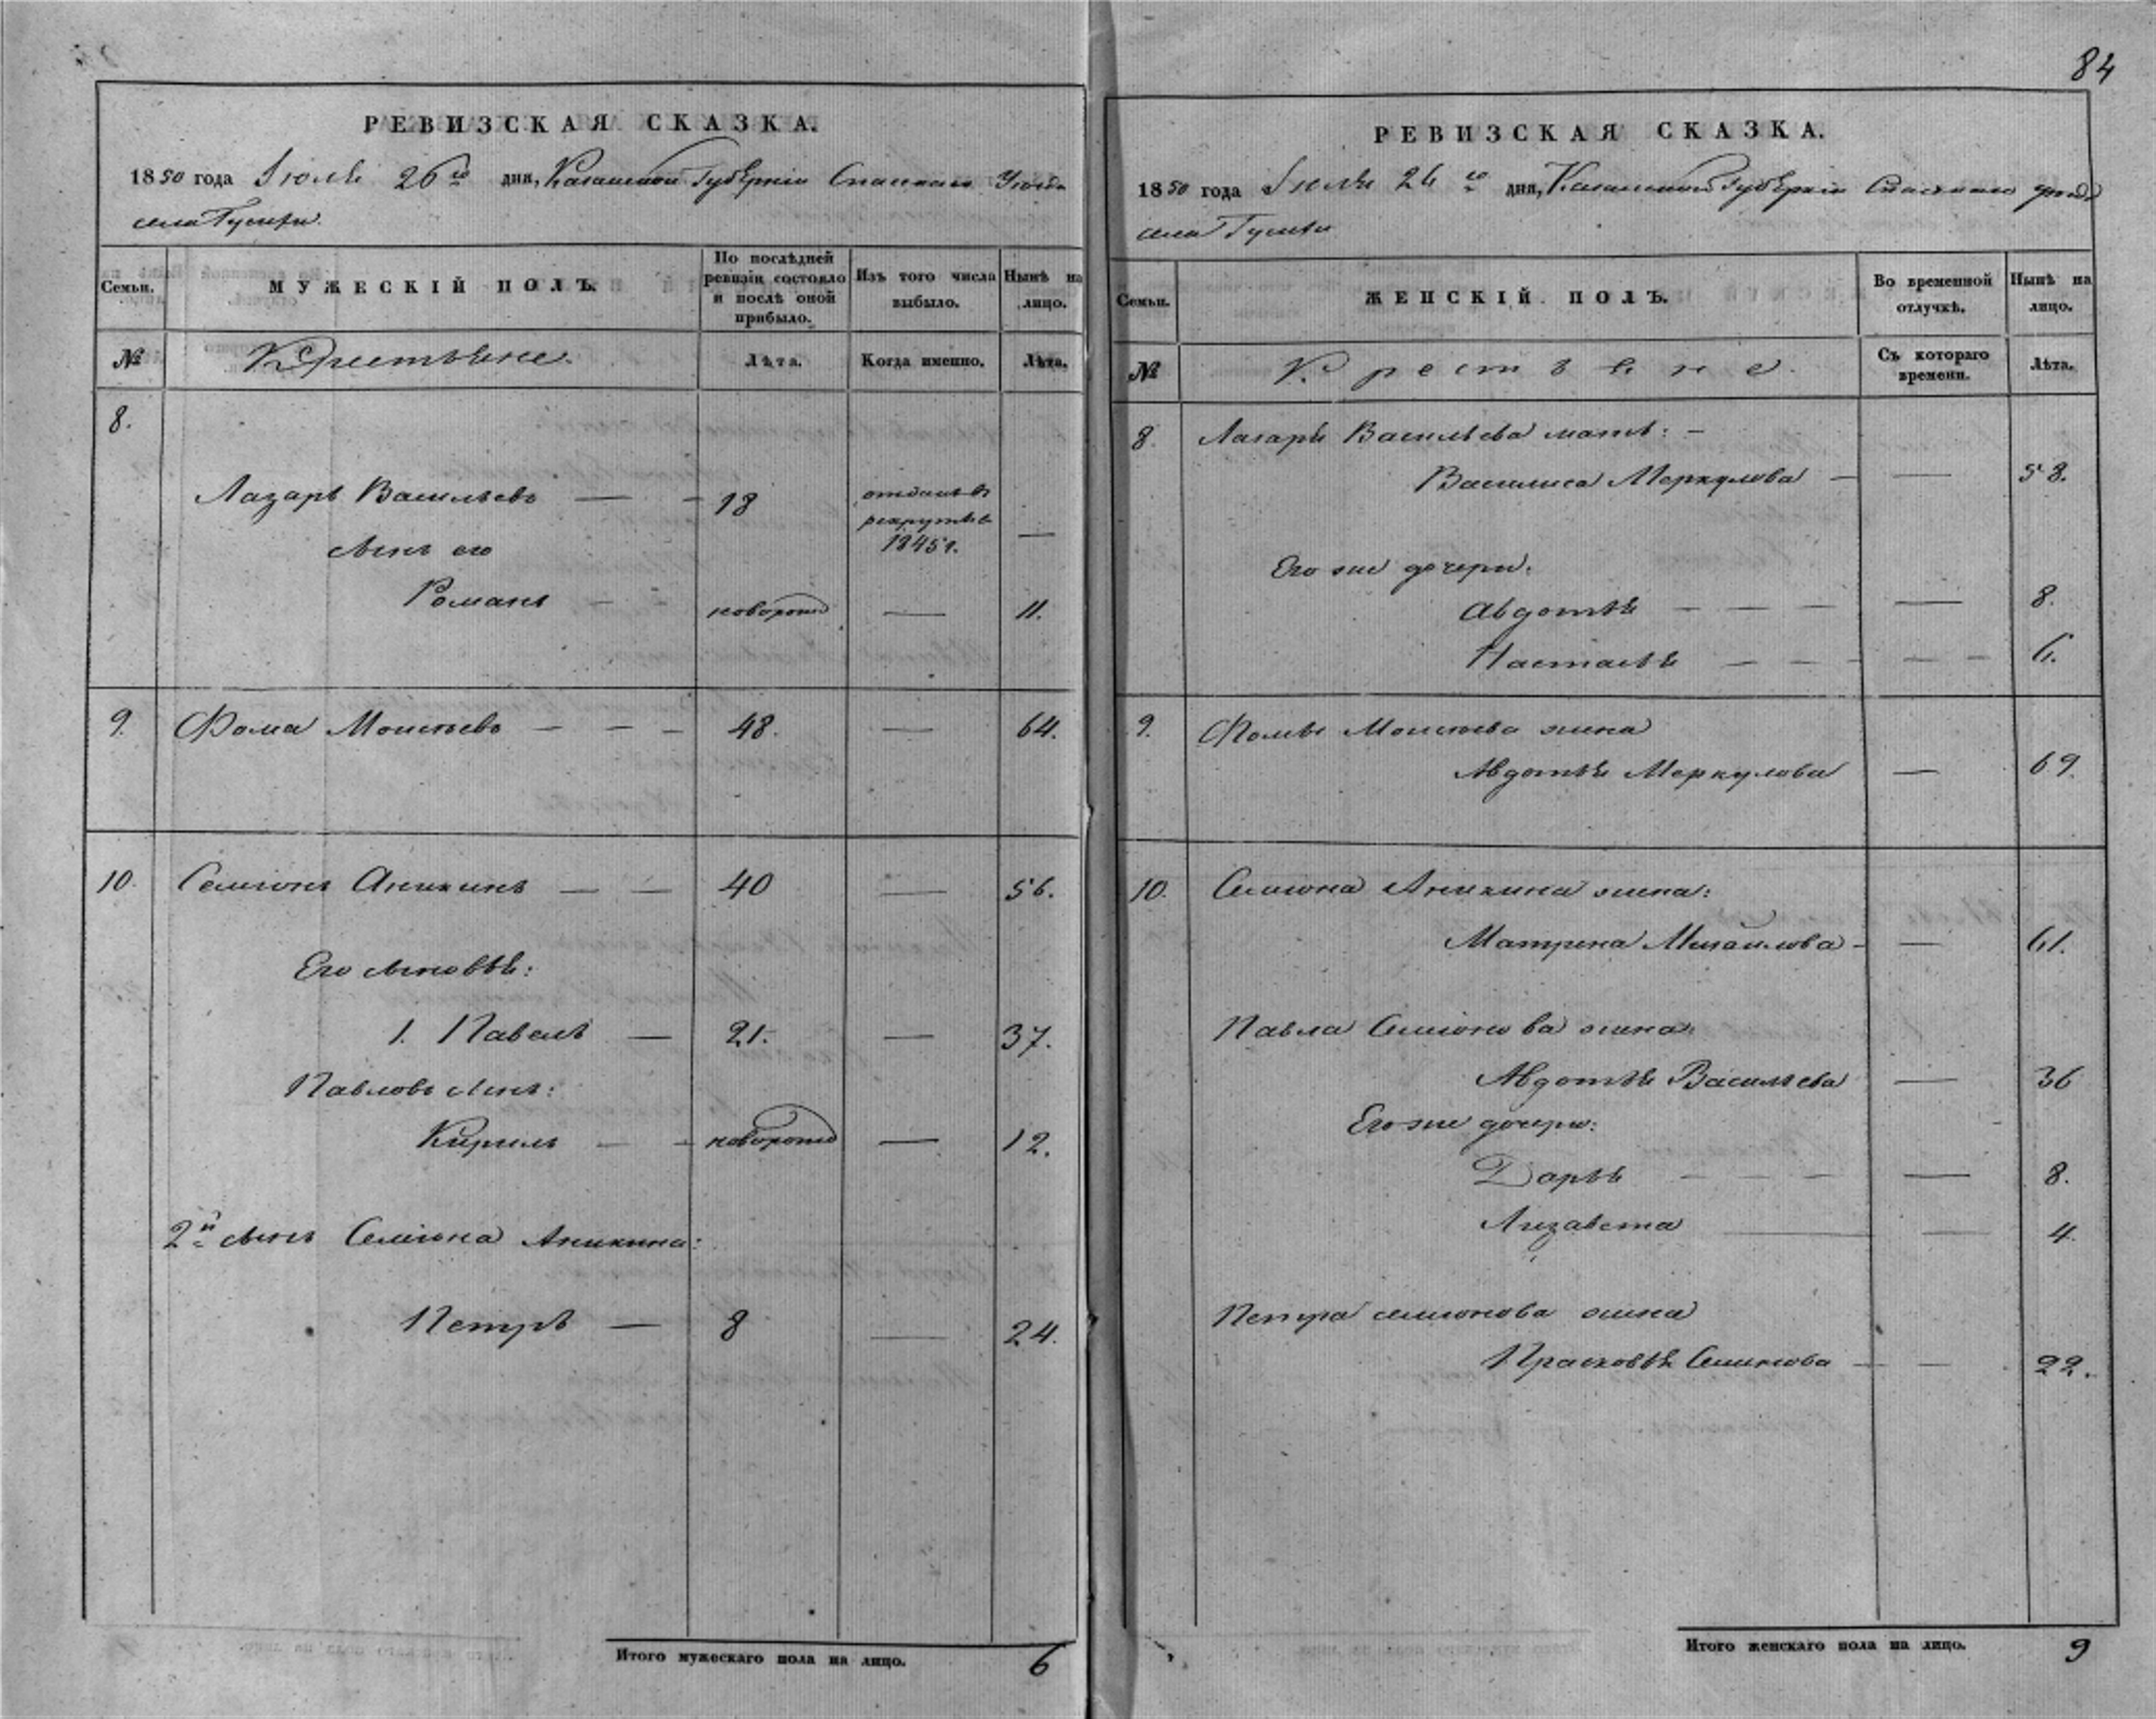 84
РЕВИЗСКАЯ СКАЗКА.
1850 года Іюля 26го дня, Казанской Губерніи Спасскаго Уезда
села Гусихи.
Семьи.
МУЖЕСКІЙ ПОЛЪ.
По послѣдней ревизіи состояло и послѣ оной прибыло.
Изъ того числа выбыло.
Нынѣ на лицо.
№
Крестьяне.
Лѣта.
Когда именно.
Лѣта.
8.
Лазарь Васильевъ — - 18 отданъ въ рекруты въ 1845 г. —
сынъ его
Романъ — - новорожд — 11.
9. Фома Моисеевъ — — — 48. — 64.
10. Семіонъ Аникинъ — — 40 — 56.
Его сыновья:
1. Павелъ — 21. — 37.
Павловъ сынъ:
Кирилъ — - новорожд — 12.
2й сынъ Семіона Аникина:
Петръ — 8 — 24.
Итого мужескаго пола на лицо. 6
РЕВИЗСКАЯ СКАЗКА.
1850 года Іюля 26 го дня, Казанской Губерніи Спасскаго уезда
села Гусихи
Семьи.
ЖЕНСКІЙ ПОЛЪ.
Во временной отлучкѣ.
Нынѣ на лицо.
№
Крестьяне.
Съ котораго времени.
Лѣта.
8. Лазаря Васильева мать: -
Василиса Меркулова — — 58.
Его же дочери:
Авдотья — — — — 8.
Настасья — — — — — — 6.
9. Фомы Моисеева жена
Авдотья Меркулова — 69.
10. Семиона Аникина жена:
Матрена Михайлова - — 61.
Павла Семионова жена:
Авдотья Васильева — 36
Его же дочери:
Дарья — — — — 8.
Лизавета — — 4.
Петра семионова жена
Прасковья Семионова — — 22.
Итого женскаго пола на лицо. 9